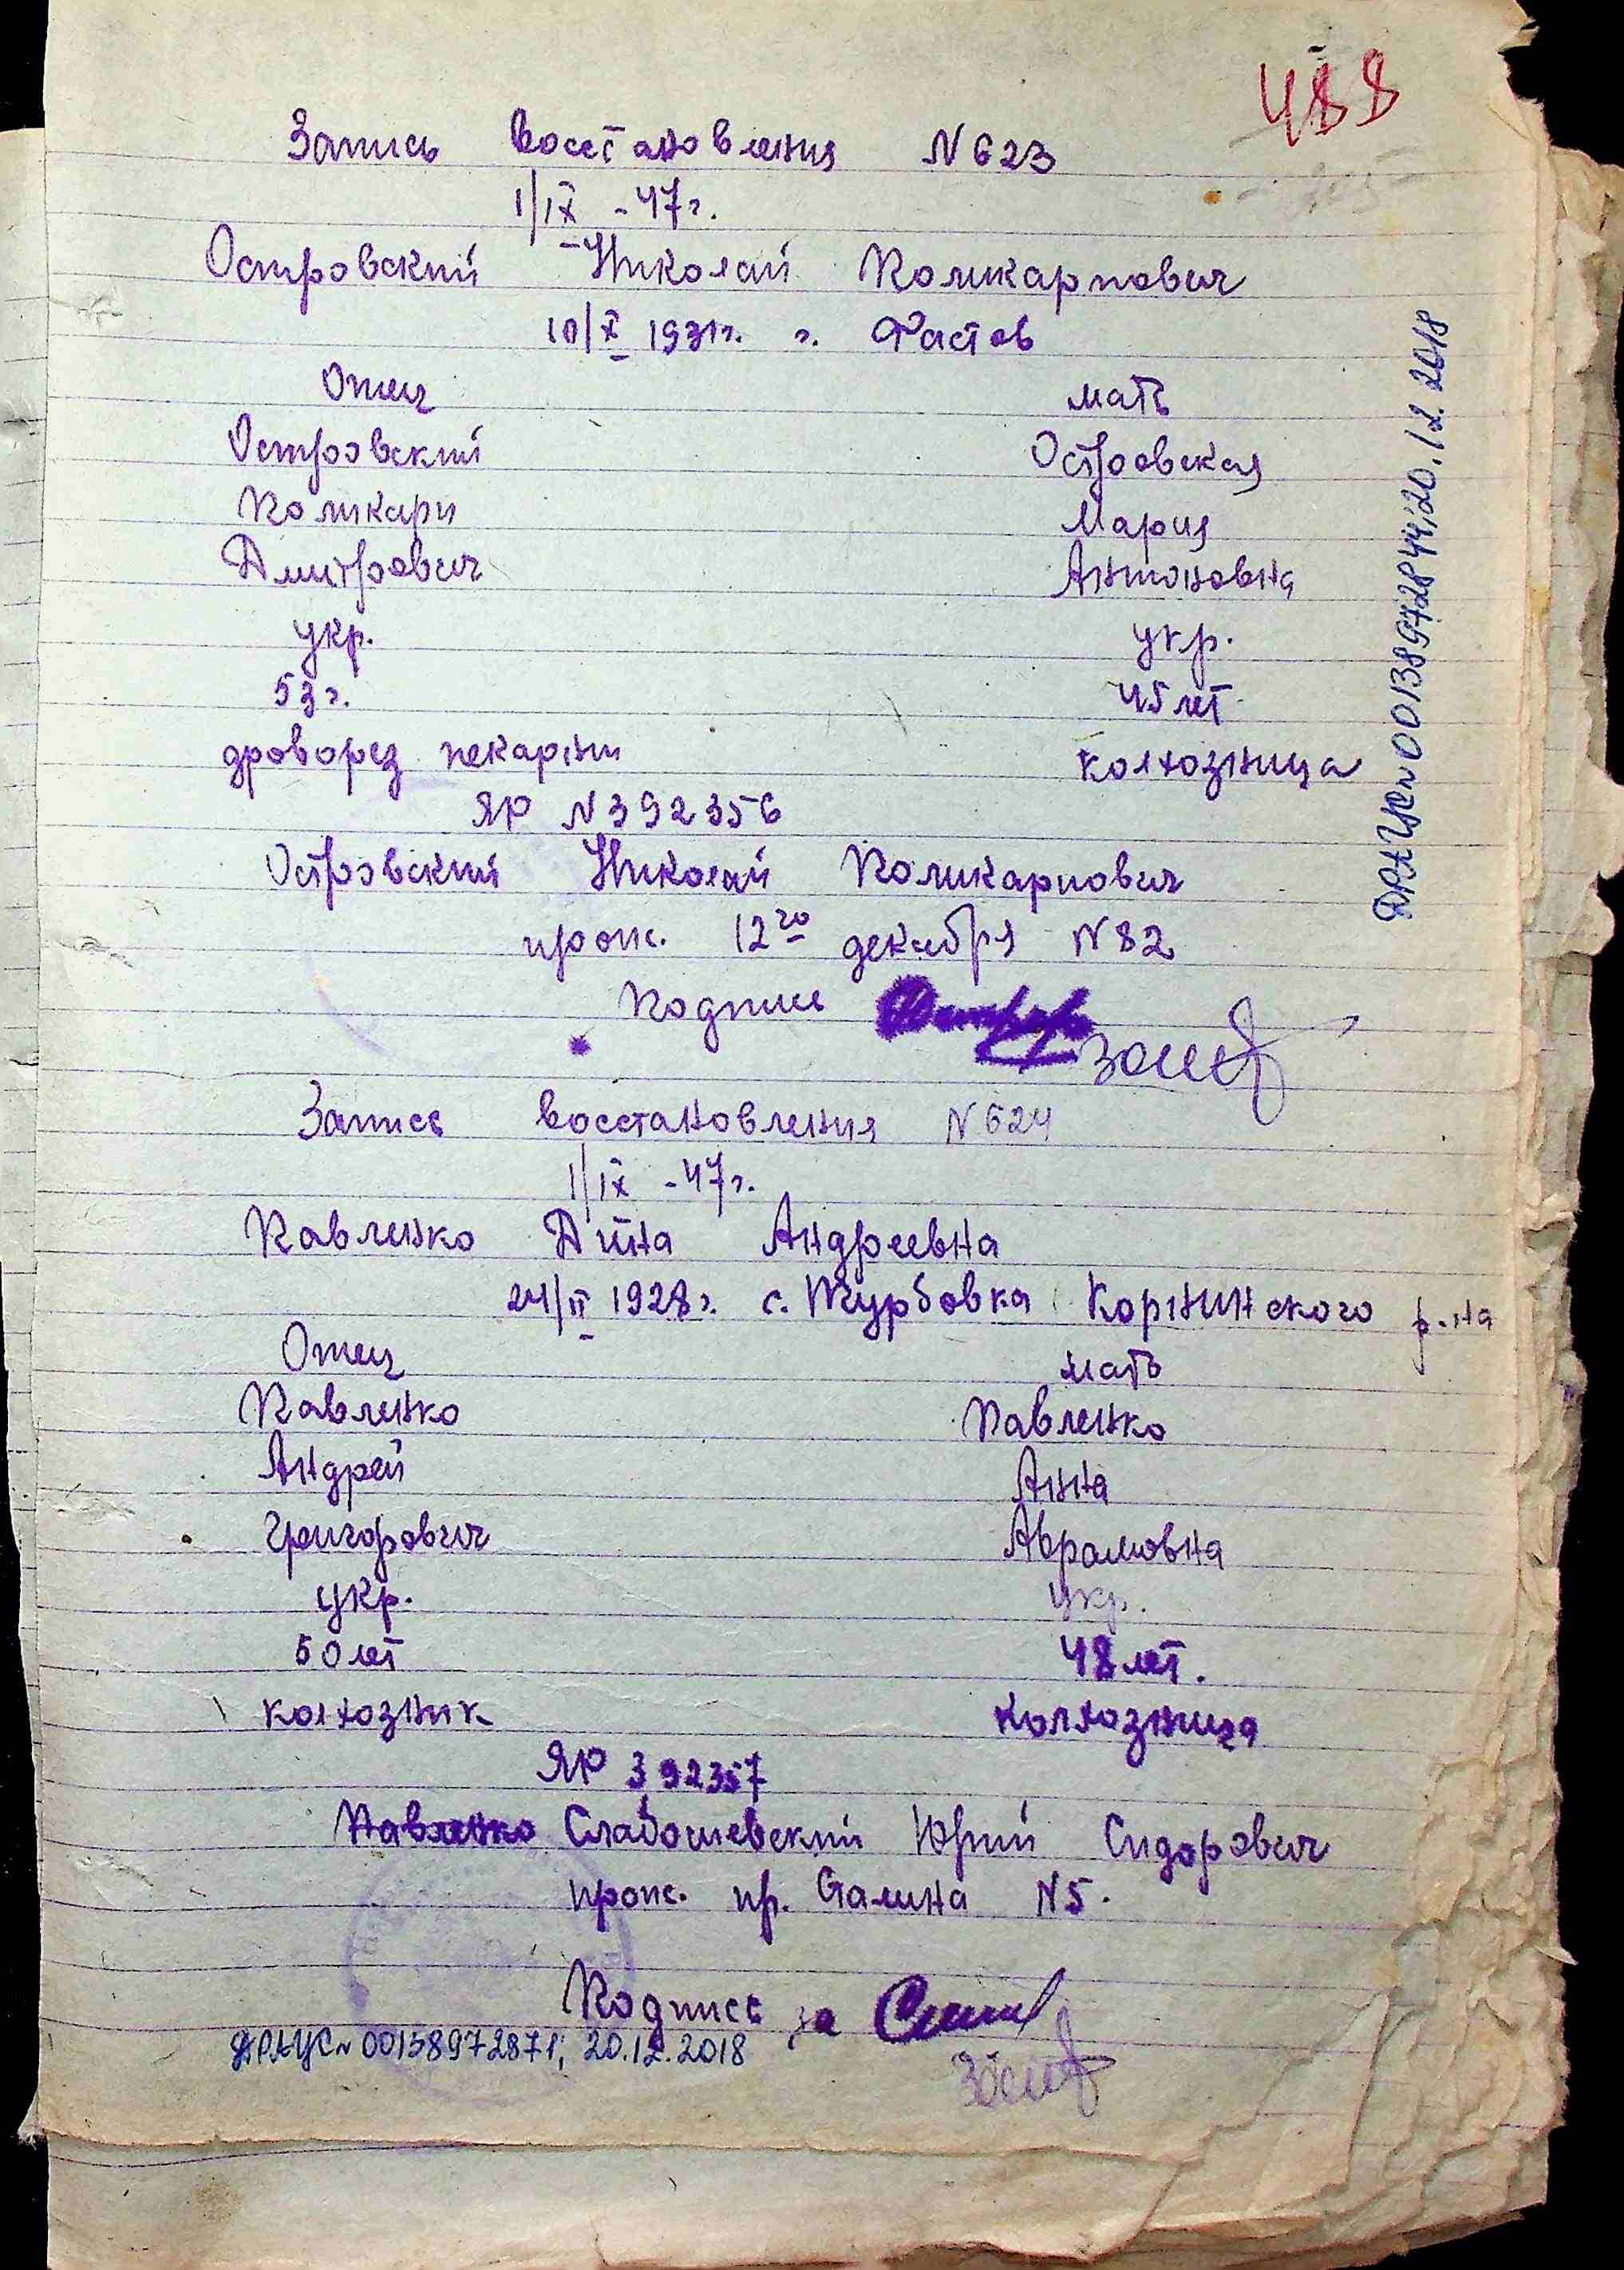 488
Запись восстановления N 623
1/IX - 47 г.
Островский Николай Поликарпович
10/X 1931 г. г. Фастов
Отец мать
Островский Островская
Поликарп Мария
Дмитрович Антоновна
укр. укр.
53 г. 45 лет
дроворез пекарни колхозница
ЯР N 392356
Островский Николай Поликарпович
прож. 12го декабря N 82
Подпись
ДРАЦСN 00138972844; 20.12.2018
Запись восстановления N 624
1/IX - 47 г.
Павленко Дина Андреевна
24/II 1928 г. с. Журбовка Корнинского р-на
Отец мать
Павленко Павленко
Андрей Анна
Григорович Аврамовна
укр. укр.
50 лет 48 лет.
колхозник колхозница
ЯР 392357
Павленко Сладошевский Юрий Сидорович
прож. пр. Сталина N 5.
Подпись за
ДРАЦСN 00138972871; 20.12.2018